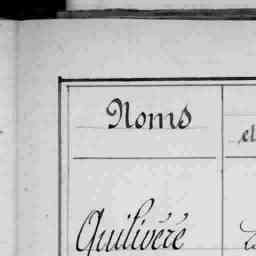 Noms
et
Quilivéré